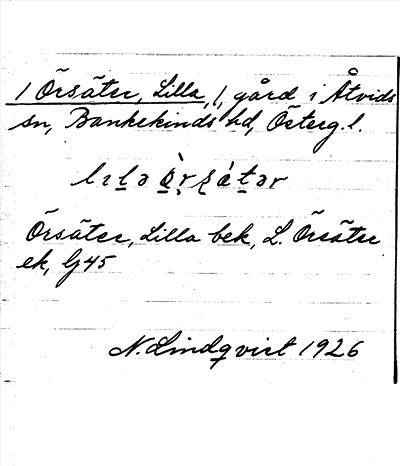 1 Örsäter, Lilla, 1, gård i Åtvids
sn, Bankekinds hd, Österg. l.
Örsäter, Lilla bek, L. Örsäter
ek, G45
N. Lindqvist 1926